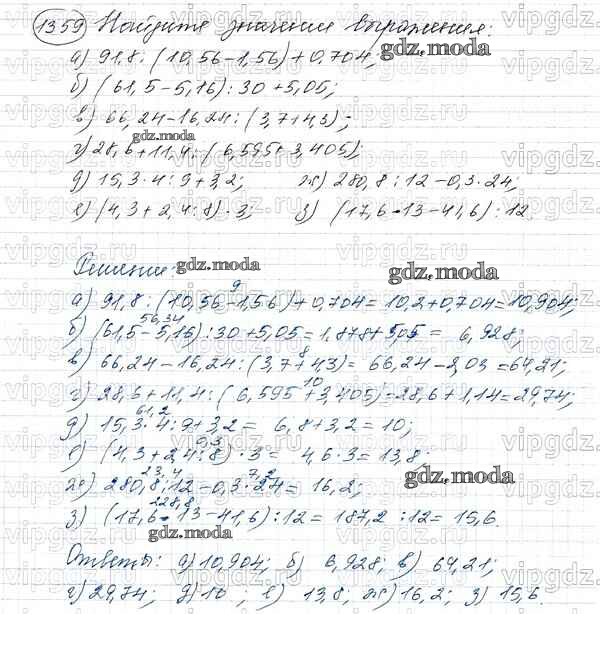 1359 Найдите значения выражения:
а) 91,8 : (10,56 - 1,56) + 0,704;
б) (61,5 - 5,16) : 30 + 5,05;
в) 66,24 - 16,24 : (3,7 + 4,3);
г) 28,6 + 11,4 : (6,595 + 3,405);
д) 15,3 · 4 : 9 + 3,2; ж) 280,8 : 12 - 0,3 · 24;
е) (4,3 + 2,4 : 8) · 3; з) (17,6 · 13 - 41,6) : 12.
Решение:
9
а) 91,8 : (10,56 - 1,56) + 0,704 = 10,2 + 0,704 = 10,904;
56,34
б) (61,5 - 5,16) : 30 + 5,05 = 1,878 + 5,05 = 6,928;
8
в) 66,24 - 16,24 : (3,7 + 4,3) = 66,24 - 2,03 = 64,21;
10
г) 28,6 + 11,4 : (6,595 + 3,405) = 28,6 + 1,14 = 29,74;
61,2
д) 15,3 · 4 : 9 + 3,2 = 6,8 + 3,2 = 10;
0,3
е) (4,3 + 2,4 : 8) · 3 = 4,6 · 3 = 13,8;
23,4 7,2
ж) 280,8 : 12 - 0,3 · 24 = 16,2;
228,8
з) (17,6 · 13 - 41,6) : 12 = 187,2 : 12 = 15,6.
Ответы: а) 10,904; б) 6,928; в) 64,21;
г) 29,74; д) 10; е) 13,8; ж) 16,2; з) 15,6.
gdz.moda
gdz.moda
gdz.moda
gdz.moda
gdz.moda
gdz.moda
vipgdz.ru